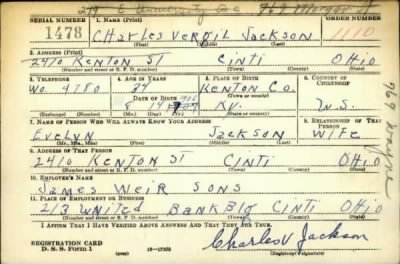 219 E University Ave 969 Morgan St
SERIAL NUMBER 1. NAME (Print) ORDER NUMBER
1478 CHARLES VERGIL JACKSON 1110
(First) (Middle) (Last)
2. ADDRESS (Print)
2410 KENTON ST CINTI OHIO
(Number and street or R. F. D. number) (Town) (County) (State)
3. TELEPHONE 4. AGE IN YEARS 5. PLACE OF BIRTH 6. COUNTRY OF CITIZENSHIP
WO. 4780 34 KENTON CO.
DATE OF BIRTH (Town or county)
8 14 KY. U.S.
(Exchange) (Number) (Mo.) (Day) (Yr.) (State or country)
7. NAME OF PERSON WHO WILL ALWAYS KNOW YOUR ADDRESS 8. RELATIONSHIP OF THAT PERSON
EVELYN JACKSON WIFE
(Mr., Mrs., Miss) (First) (Middle) (Last)
9. ADDRESS OF THAT PERSON
2410 KENTON ST CINTI OHIO
(Number and street or R. F. D. number) (Town) (County) (State)
10. EMPLOYER'S NAME
JAMES WEIR SONS
11. PLACE OF EMPLOYMENT OR BUSINESS
213 UNITED BANK BLG CINTI OHIO
(Number and street or R. F. D. number) (Town) (County) (State)
I AFFIRM THAT I HAVE VERIFIED ABOVE ANSWERS AND THAT THEY ARE TRUE.
REGISTRATION CARD
D. S. S. Form 1 16-17105
Charles V Jackson
(Registrant's signature)